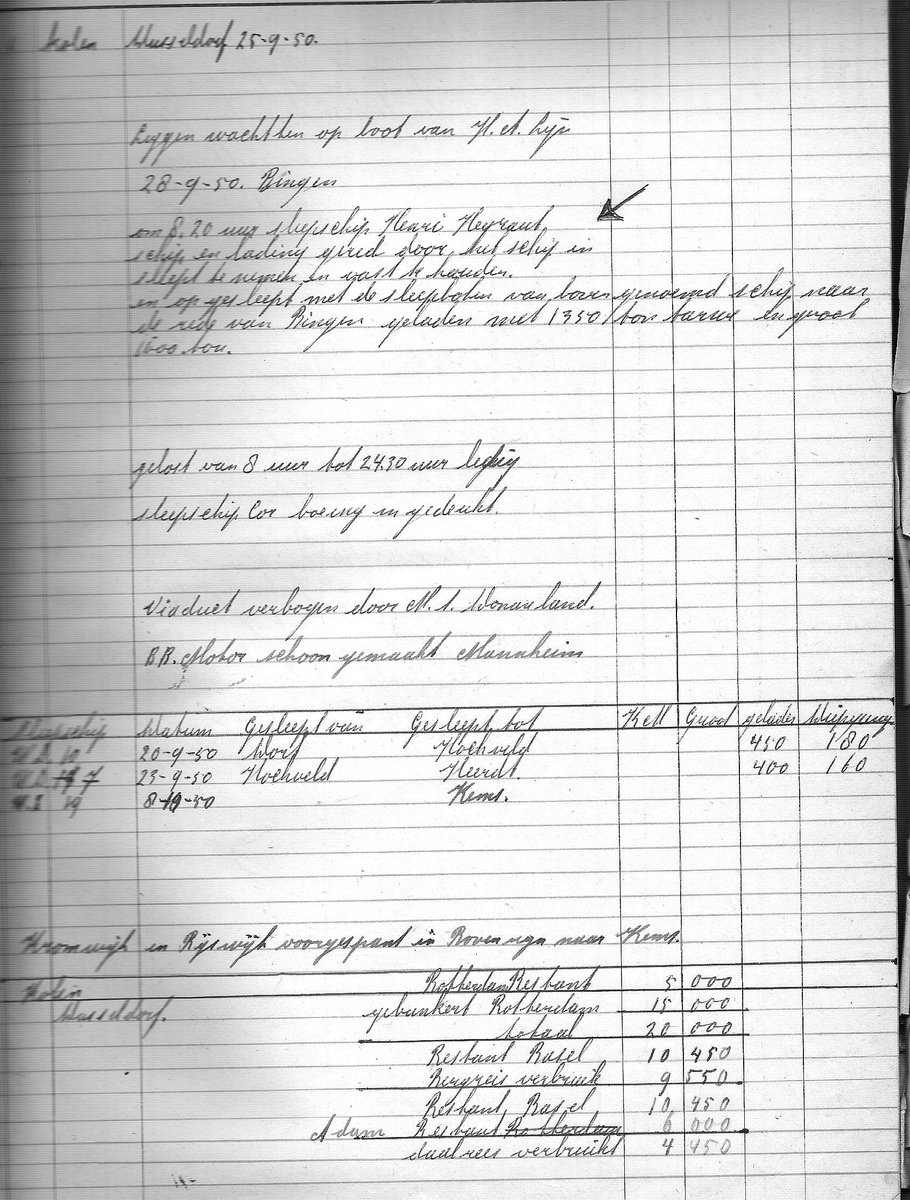 Dusseldorf 25-9-50.
Leggen wachtten op boot van H. A. Lijn
28-9-50. Bingen
om 8.20 uur sleepschip Henri Heyraut,
schip en lading gered door, het schip in
sleept te nemen en vast te houden.
en op gesleept met de sleepboten van boven genoemd schip naar
de rede van Bingen geladen met 1350 ton tarwe en groot
1600 ton.
gelost van 8 uur tot 24.30 uur ledig
sleepschip Cor boeing in gedeukt.
Viaduct verbogen door M.S.
BB. Motor schoon gemaakt Mannheim
Sleepschip Datum Gesleept van Gesleept tot KM Groot geladen diepgang
10 20-9-50 Hochveld 450 180
7 25-9-50 Hochveld Heerdt. 400 160
19 8-10-50 Kems.
Kromwijk en Rijswijk voorgespant in naar Kems.
Dusseldorf. Rotterdam Restant 5 000
gebunkert Rotterdam 15 000
totaal 20 000
Restant Basel 10 450
Bergreis verbruik 9 550
Restant Basel 10 450
Adam Restant Rotterdam 6 000
daalrees verbruikt 4 450